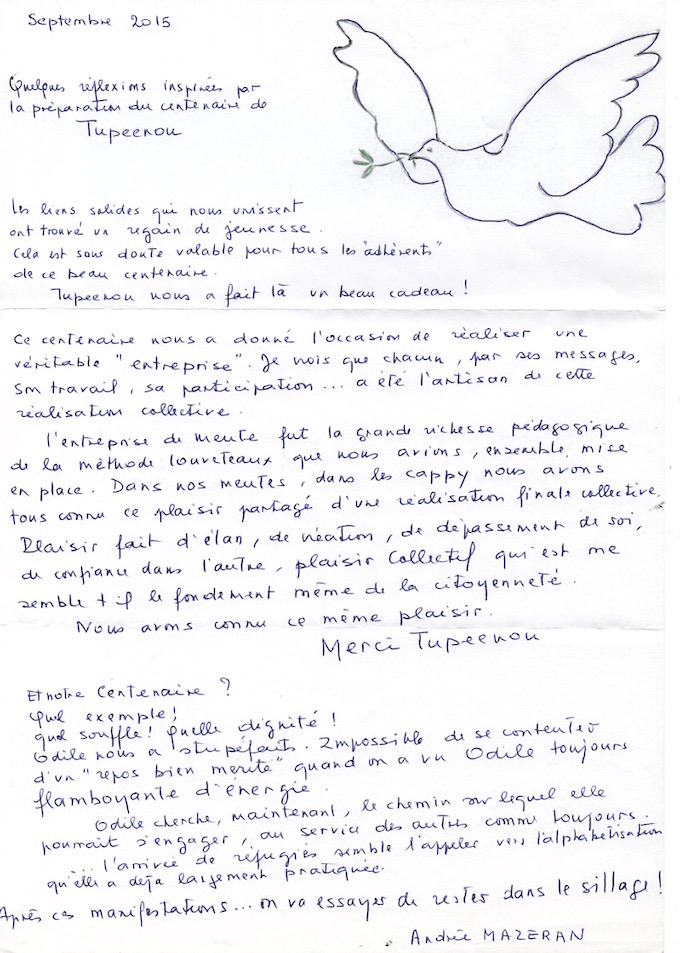 Septembre 2015
Quelques réflexions inspirées par
la préparation du centenaire de
Tupeenou
Les liens solides qui nous unissent
ont trouvé un regain de jeunesse.
Cela est sous doute valable pour tous les "adhérents"
de ce beau centenaire.
Tupeenou nous a fait là un beau cadeau !
Ce centenaire nous a donné l'occasion de réaliser une
véritable "entreprise". Je vois que chacun, par ses messages,
son travail, sa participation... a été l'artisan de cette
réalisation collective.
l'entreprise de meute fut la grande richesse pédagogique
de la méthode louveteaux que nous avions, ensemble, mise
en place. Dans nos meutes, dans les cappy nous avons
tous connu ce plaisir partagé d'une réalisation finale collective.
Plaisir fait d'élan, de création, de dépassement de soi,
de confiance dans l'autre, plaisir collectif qui est me
semble t-il le fondement même de la citoyenneté.
Nous avons connu ce même plaisir.
Merci Tupeenou
Et notre Centenaire ?
Quel exemple !
quel souffle ! Quelle dignité !
Odile nous a stupéfaits. Impossible de se contenter
d'un "repos bien mérité" quand on a vu Odile toujours
flamboyante d'énergie.
Odile cherche, maintenant, le chemin sur lequel elle
pourrait s'engager, au service des autres comme toujours.
... l'arrivée de réfugiés semble l'appeler vers l'alphabétisation
qu'elle a déja largement pratiquée.
Après ces manifestations... on va essayer de rester dans le sillage !
Andrée MAZERAN